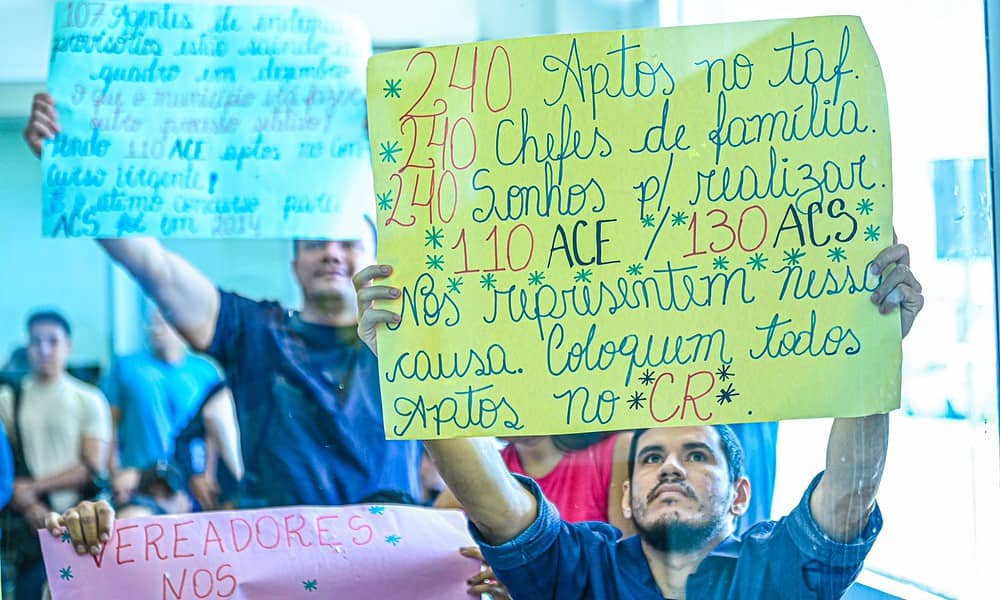 107 Agentes de endemias
provisórios estão saindo do
quadro em dezembro
O que o município irá fazer
outro processo seletivo?
tendo 110 ACE aptos no Con
curso vigente!
E o último concurso para
ACS foi em 2014
* 240 Aptos no taf.
* 240 Chefes de família.
* 240 Sonhos p/ realizar.
* 110 ACE / 130 ACS *
Nós representem nessa
causa. Coloquem todos
Aptos no *CR*.
VEREADORES
NOS